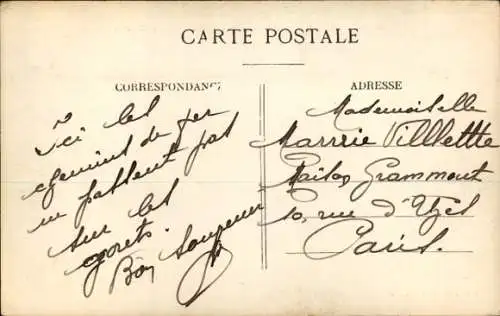 CARTE POSTALE
CORRESPONDANCE
Ici les
chemins de fer
ne passent pas
sur les
gorets.
Bon souvenir
ADRESSE
Mademoiselle
Marrie Villlettte
Maison Grammont
10, rue d'Uzès
Paris.